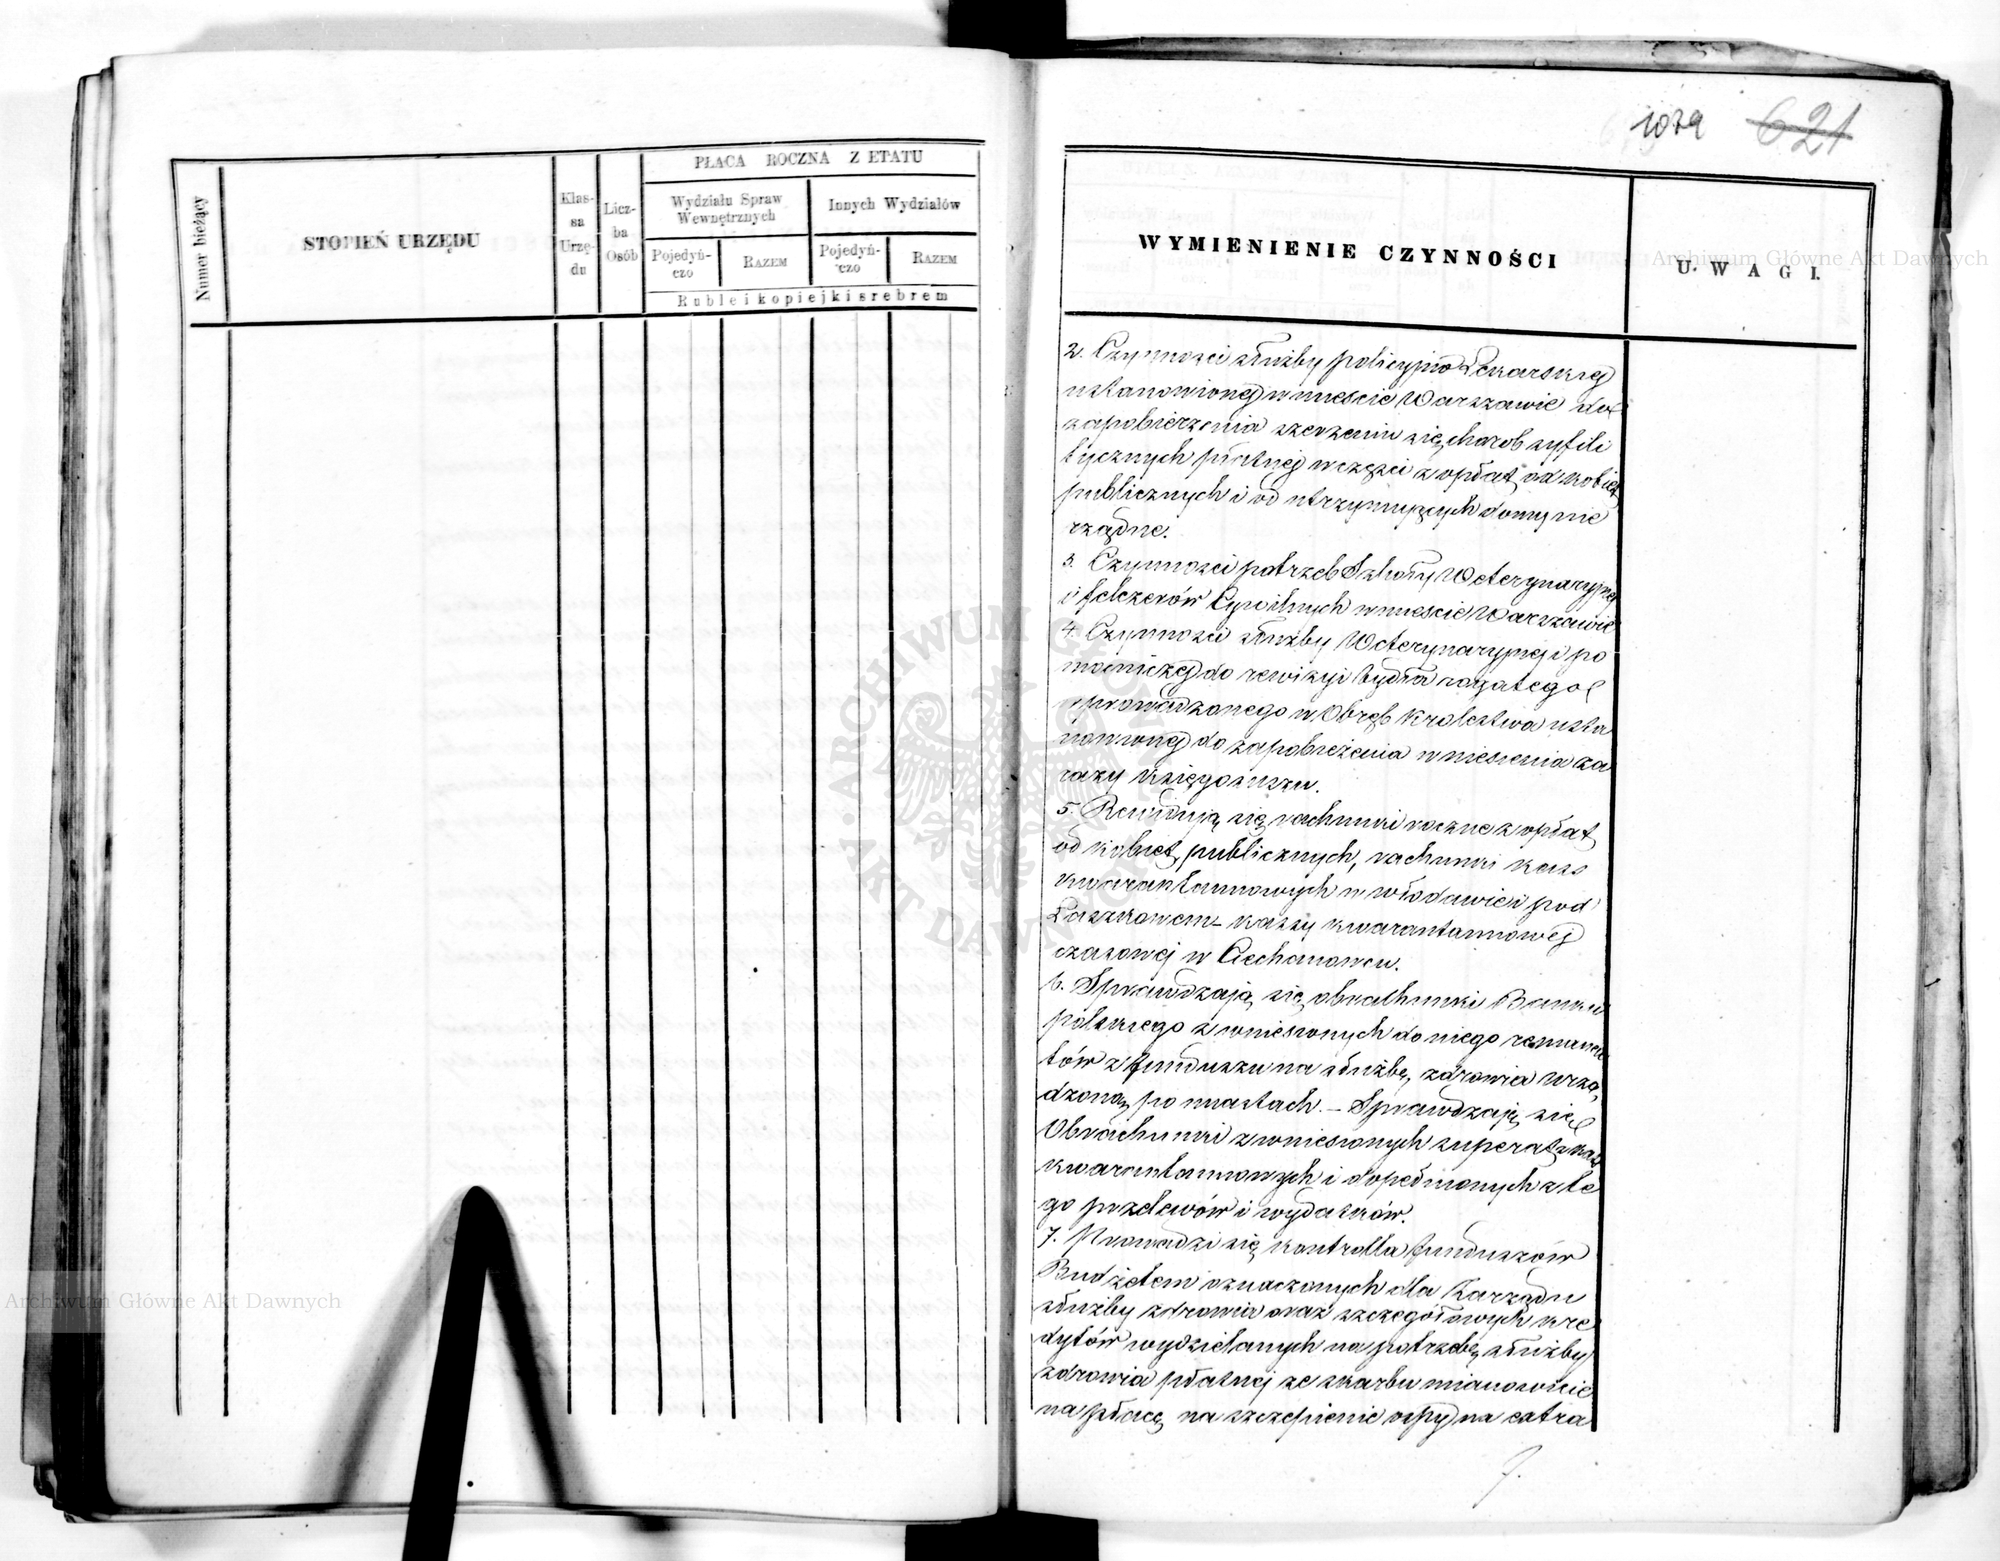 Numer bieżący
STOPIEŃ URZĘDU
Klas-
sa
Urzę-
du
Licz-
ba
Osób
PŁACA ROCZNA Z ETATU
Wydziału Spraw
Wewnętrznych
Innych Wydziałów
Pojedyń-
czo
RAZEM
Pojedyń-
czo
RAZEM
Ruble i kopiejki srebrem
1079 621
WYMIENIENIE CZYNNOŚCI
UWAGI.
2. Czynności służby policyjno Lekarskiej
ustanowionej w mieście Warszawie do
zapobierzenia szerzeniu się chorob syfili
tycznych płatnej w części z opłat od kobiet
publicznych i od utrzymujących domy nie
rządne.
3. Czynności potrzeb Szkoły Weterynaryjnej
i felczerów Cywilnych w mieście Warszawie
4. Czynności służby Weterynaryjnej i po
mocniczej do rewizyi bydła rogatego
wprowadzanego w Obręb Królestwa usta
nowionej do zapobieżenia wniesienia za
razy księgosuszu.
5. Rewidują się rachunki roczne z opłat
od kobiet publicznych, rachunki kass
kwarantannowych w Włodawie i pod
Łaszkowem – kassy kwarantannowej
czasowej w Ciechanowcu.
6. Sprawdzają się obrachunki Banku
polskiego z wniesionych do niego remanen
tów z funduszu na służbę zdrowia urzą
dzoną po miastach. – Sprawdzają się
Obrachunki z wniesionych superat z kass
kwarantannowych i dopełnionych z te
go przelewów i wydatków.
7. Prowadzi się kontrolla funduszów
Budżetem oznaczonych dla Zarządu
służby zdrowia oraz szczegółowych kre
dytów wydzielanych na potrzebę służby
zdrowia płatnej ze skarbu mianowicie
na płacę na szczepienie ospy na extra
Archiwum Główne Akt Dawnych
Archiwum Główne Akt Dawnych
ARCHIWUM GŁÓWNE AKT DAWNYCH